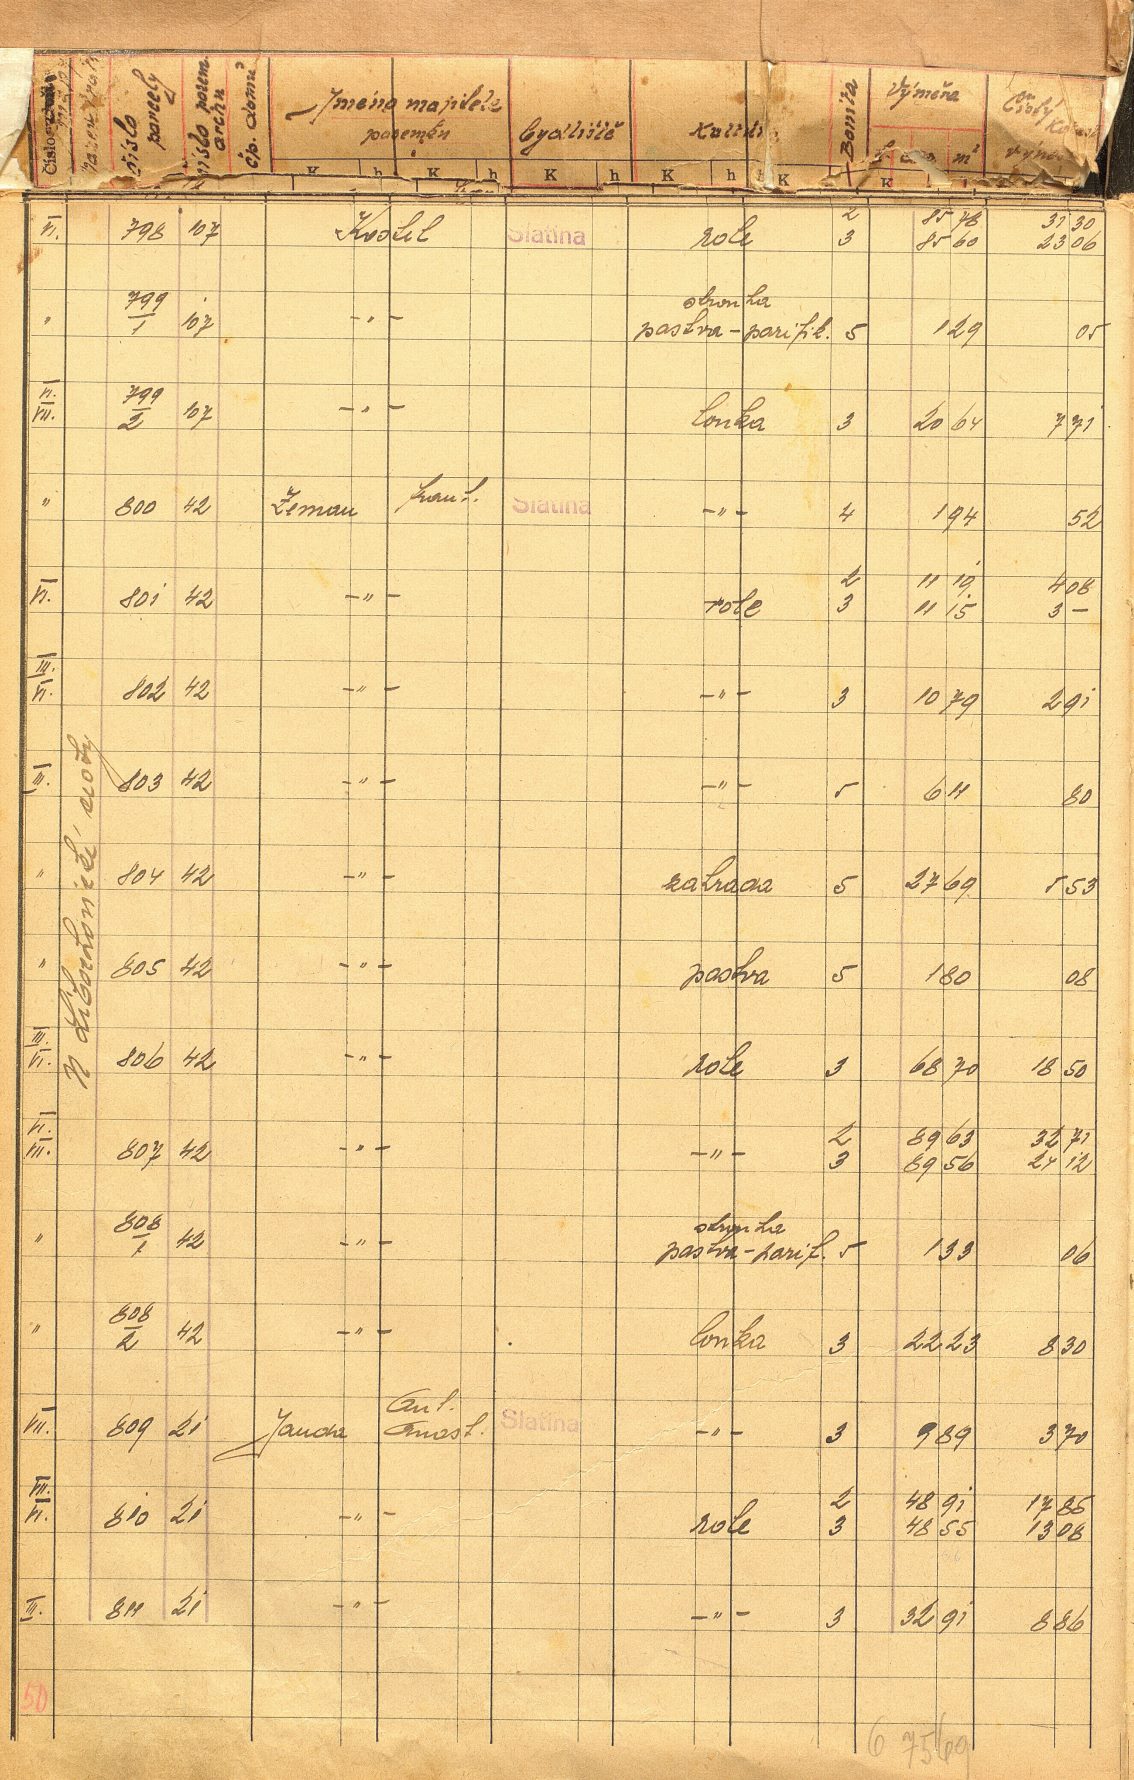 Číslo mapy
název tratě
číslo parcely
číslo pozem. archu
čp. domu
Jméno majitele pozemku
Bydliště
Kultura
Bonita
Výměra
m²
Čistý
výnos
K h K h K h K h K K
VI. 798 107 Kostel Slatina role 2 85 78 31 30
3 85 60 23 06
" 799/1 107 -"- stronka
pastva-parifik. 5 1 29 05
VI. VII. 799/2 107 -"- louka 3 20 64 7 71
" 800 42 Zeman Frant. Slatina -"- 4 1 94 52
VI. 801 42 -"- role 2 11 19 4 08
3 11 15 3 -
III. VI. 802 42 -"- -"- 3 10 79 2 91
III. 803 42 -"- -"- 5 6 11 80
" 804 42 -"- zahrada 5 27 69 5 53
" 805 42 -"- pastva 5 1 80 08
III. VI. 806 42 -"- role 3 68 70 18 50
VI. VII. 807 42 -"- -"- 2 89 63 32 71
3 89 56 24 12
" 808/1 42 -"- stronka
pastva-parif. 5 1 33 06
" 808/2 42 -"- louka 3 22 23 8 30
VII. 809 21 Janda Ant. Anast. Slatina -"- 3 9 89 3 70
VII. VI. 810 21 -"- role 2 48 91 17 85
3 48 55 13 08
III. 811 21 -"- -"- 3 32 91 8 86
50
6 75 69